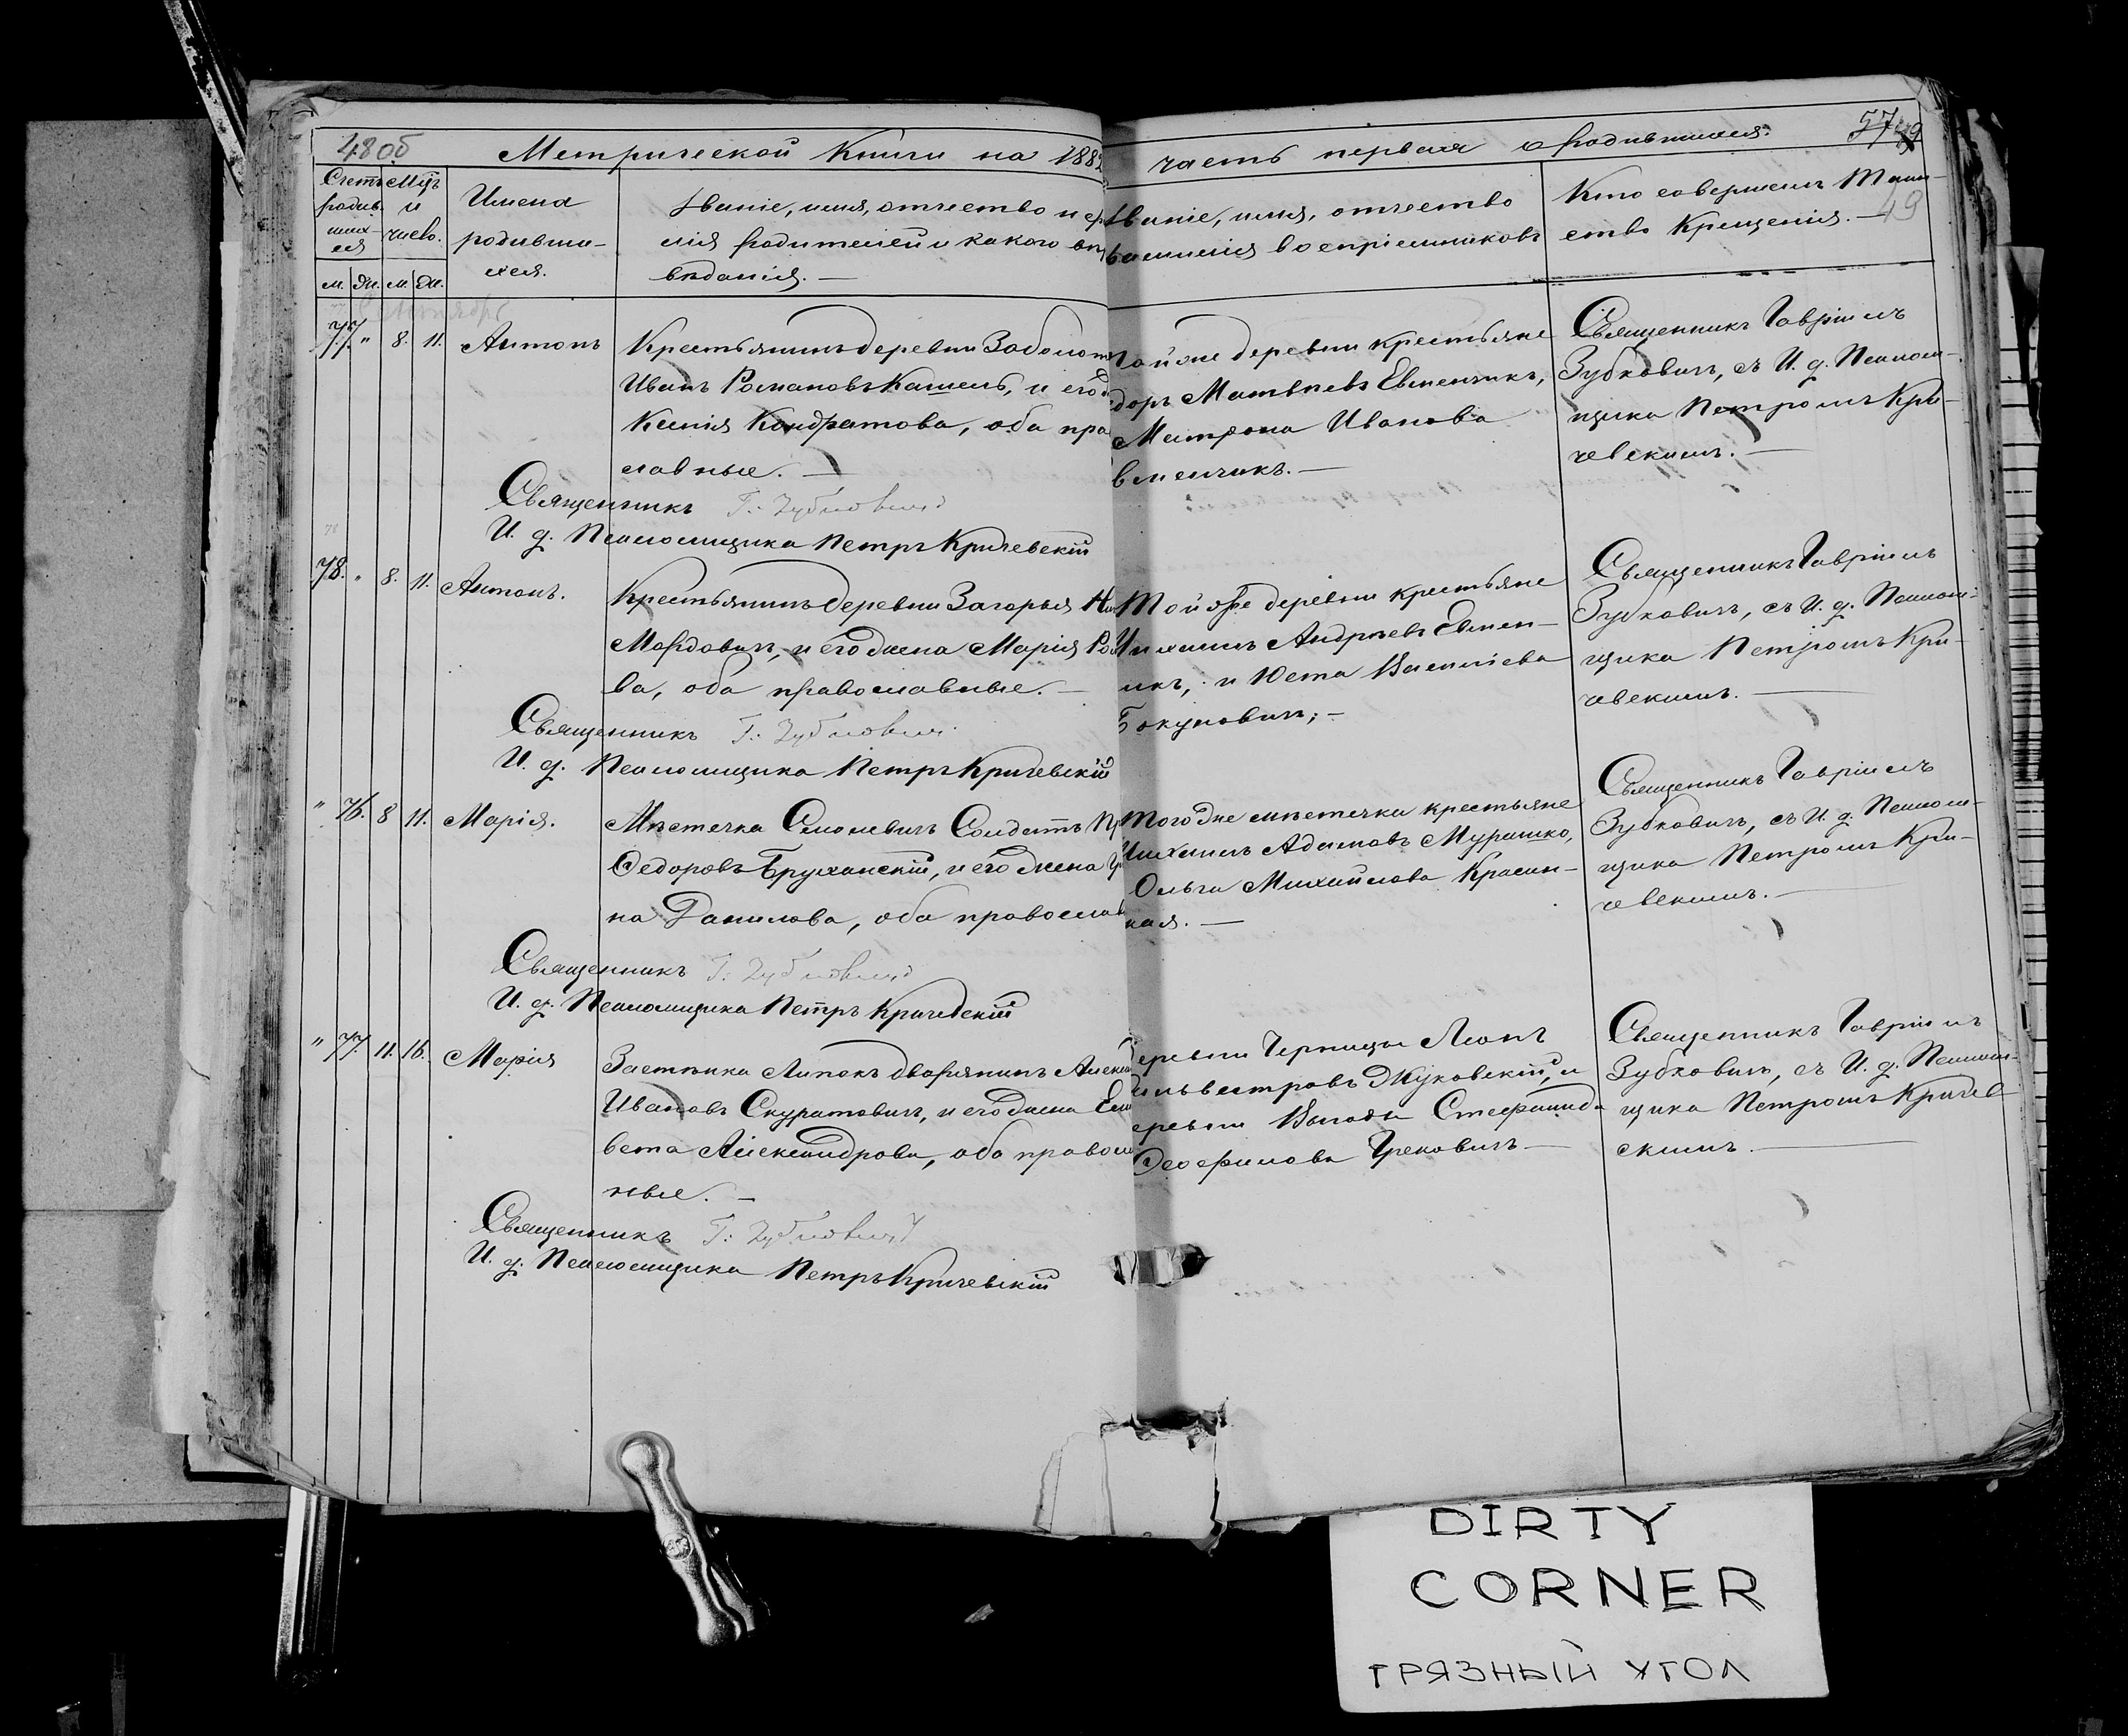 48 об
Метрической Книги на 188
часть первая о родившихся.
57
49
49
Счетъ родив- шихся
Мѣс. и число.
м. дн. м. дн.
Имена
родивши-
хся.
Званіе, имя, отчество и
лія родителей и какого
вѣданія. —
Званіе, имя, отчество
воспріемниковъ
Кто совершалъ Таин-
ство Крещенія. —
77. " 8. 11. Антонъ
Крестьянинъ деревни
Иванъ Романовъ Кашель, и его
Ксенія Кондратова, оба пра
славные. —
Священникъ Г. Зубковичъ
И. д. Псаломщика Петръ Кричевскій
той же деревни крестьяне
доръ Матвѣевъ Евменчикъ,
Матрона Иванова
вменчикъ. —
Священникъ Гавріилъ
Зубковичъ, съ И. д. Псалом-
щика Петромъ Кри-
чевскимъ. —
78
78. " 8. 11. Антонъ.
Крестьянинъ деревни Загорья
Мордовичъ, и его жена Марія
ва, оба православные. —
Священникъ Г. Зубковичъ
И. д. Псаломщика Петръ Кричевскій
Той же деревни крестьяне
Андреевъ Евмен-
икъ, и Юста Васильева
Бокуновичъ; —
Священникъ Гавріилъ
Зубковичъ, съ И. д. Псалом-
щика Петромъ Кри-
чевскимъ. —
" 76. 8 11. Марія.
Мѣстечка Семежевичъ Солдатъ
Федоровъ Бруханскій, и его жена
на Данилова, оба православ
Священникъ Г. Зубковичъ
И. д. Псаломщика Петръ Кричевскій
того же мѣстечка крестьяне
Михаилъ Адамовъ Мурашко,
Ольга Михайлова Красин-
кая. —
Священникъ Гавріилъ
Зубковичъ, съ И. д. Псалом-
щика Петромъ Кри-
чевскимъ. —
" 77. 11. 16. Марія
Застѣнка Липокъ дворянинъ
Ивановъ Скуратовичъ, и его жена Ели
вета Александрова, оба правосл
ные. —
Священникъ Г. Зубковичъ
И. д. Псаломщика Петръ Кричевскій
деревни Черницы Леонъ
Сильвестровъ Жуковскій, и
деревни Стефанида
Феофилова Грековичъ —
Священникъ Гавріилъ
Зубковичъ, съ И. д. Псалом-
щика Петромъ Кричев-
скимъ. —
DIRTY
CORNER
ГРЯЗНЫЙ УГОЛ